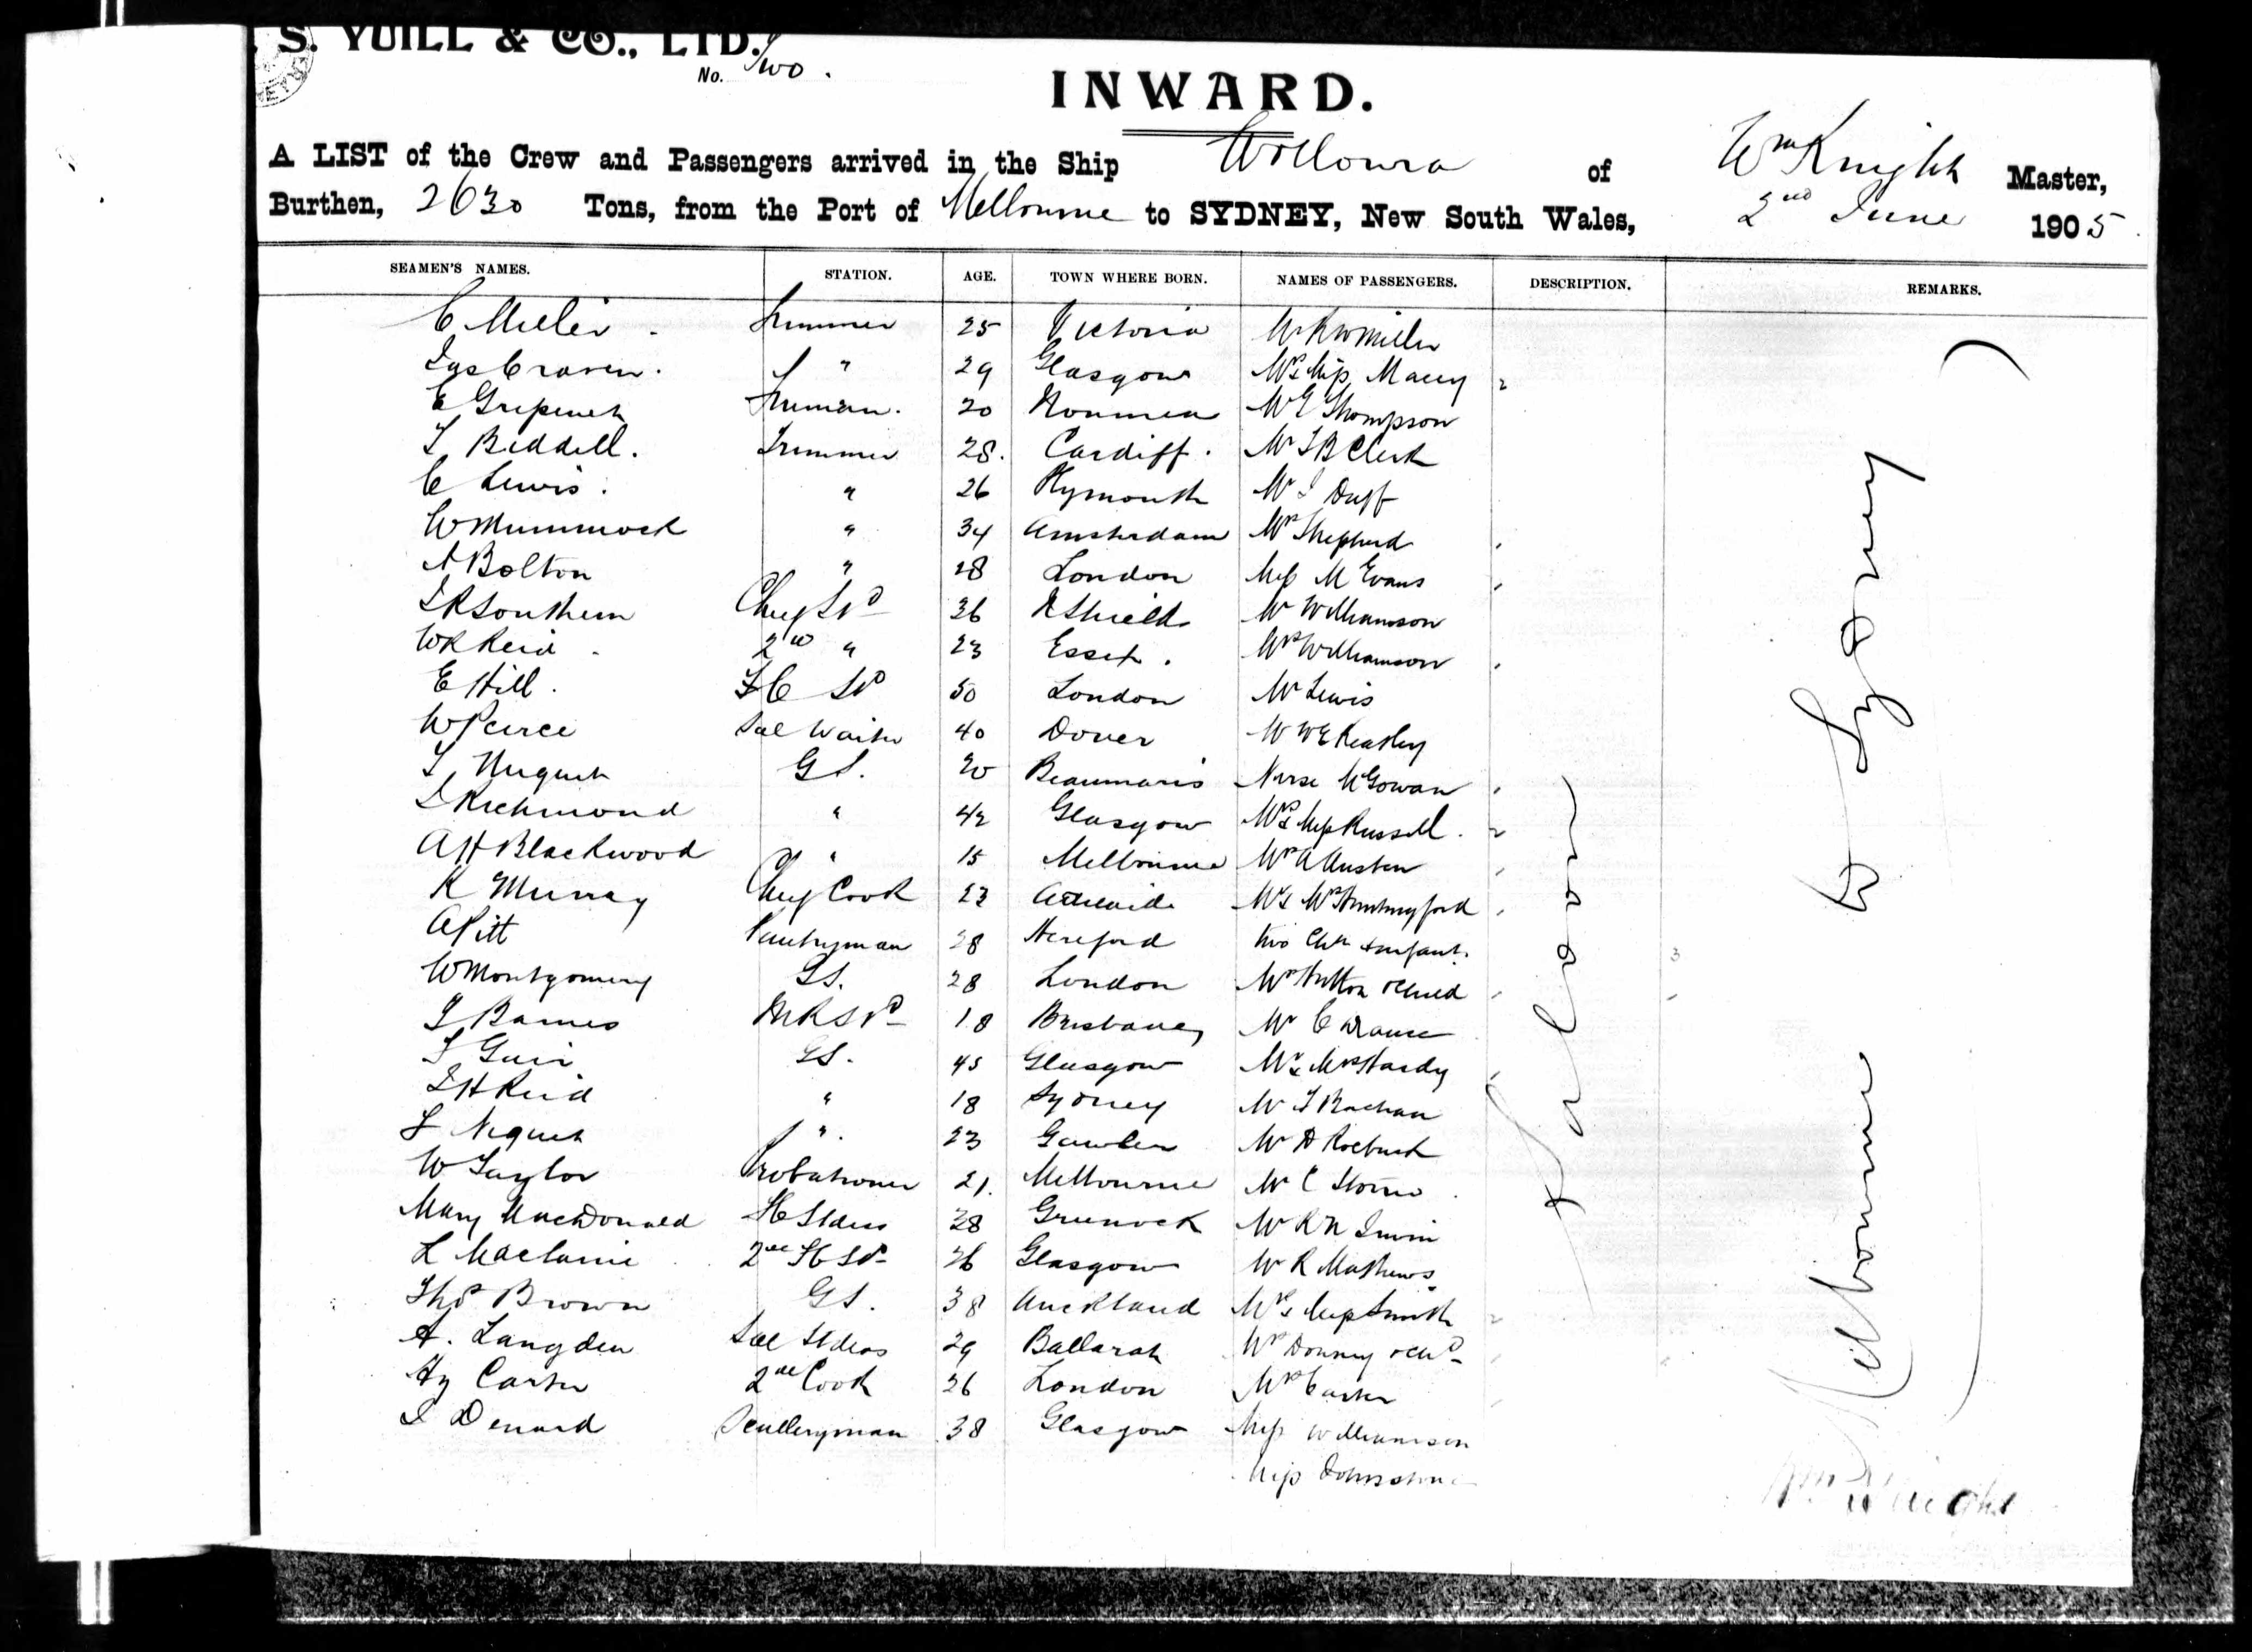 S. YUILL & CO., LTD.
No. Two.
INWARD.
A LIST of the Crew and Passengers arrived in the Ship Wollowra of Wm Knight Master,
Burthen, 2630 Tons, from the Port of Melbourne to SYDNEY, New South Wales, 2nd June 1905.
SEAMEN'S NAMES. STATION. AGE. TOWN WHERE BORN. NAMES OF PASSENGERS. DESCRIPTION. REMARKS.
C Miller Trimmer 25 Victoria Mr Miller
Jas Craven. " 29 Glasgow Mrs & Miss Macey
E Fireman. 20 Noumea Mr E Thompson
T Biddell. Trimmer 28. Cardiff. Mr Clerk
C Lewis. " 26 Plymouth Mr J Duff
W Mummock " 34 Amsterdam Mrs Shepherd
A Bolton " 28 London Miss M Evans
Southern Chief Std 36 N Shields Mr Williamson
WR Reid 2nd " 23 Essex. Mrs Williamson
E Hill. FC Std 50 London Mr Lewis
W Peirce Sal Waiter 40 Dover Mr WE Keasley
T Nugent GS. 20 Beaumaris Nurse McGowan
J Richmond " 42 Glasgow Mrs & Miss Russell.
AH Blackwood " 15 Melbourne Mrs A Austen
K Murray Chief Cook 23 Adelaide Mr & Mrs
A Pitt Pantryman 28 Hereford two Chn & infant.
W Montgomery GS. 28 London Mrs Hutton & Child
J Barnes MRStd 18 Brisbane Mr C Krause
T Gair GS. 45 Glasgow Mr & Mrs Hardy
J H Reid " 18 Sydney Mr
". 23 Gawler Mr A Roebuck
W Taylor Probationer 21. Melbourne Mr C
Mary MacDonald FC Stdess 38 Greenock Mr R N Irwin
L 2nd FC Stds 26 Glasgow Mr R Mathews
Thos Brown GS. 38 Auckland Mrs & Miss Smith
A. Langden Sal Stdess 29 Ballarat Mrs & Chd
Hy Carter 2nd Cook 26 London Mrs Carter
J Denard Sculleryman 38 Glasgow Miss Williamson
Miss Johnstone
Saloon
Melbourne to Sydney
Wm Knight